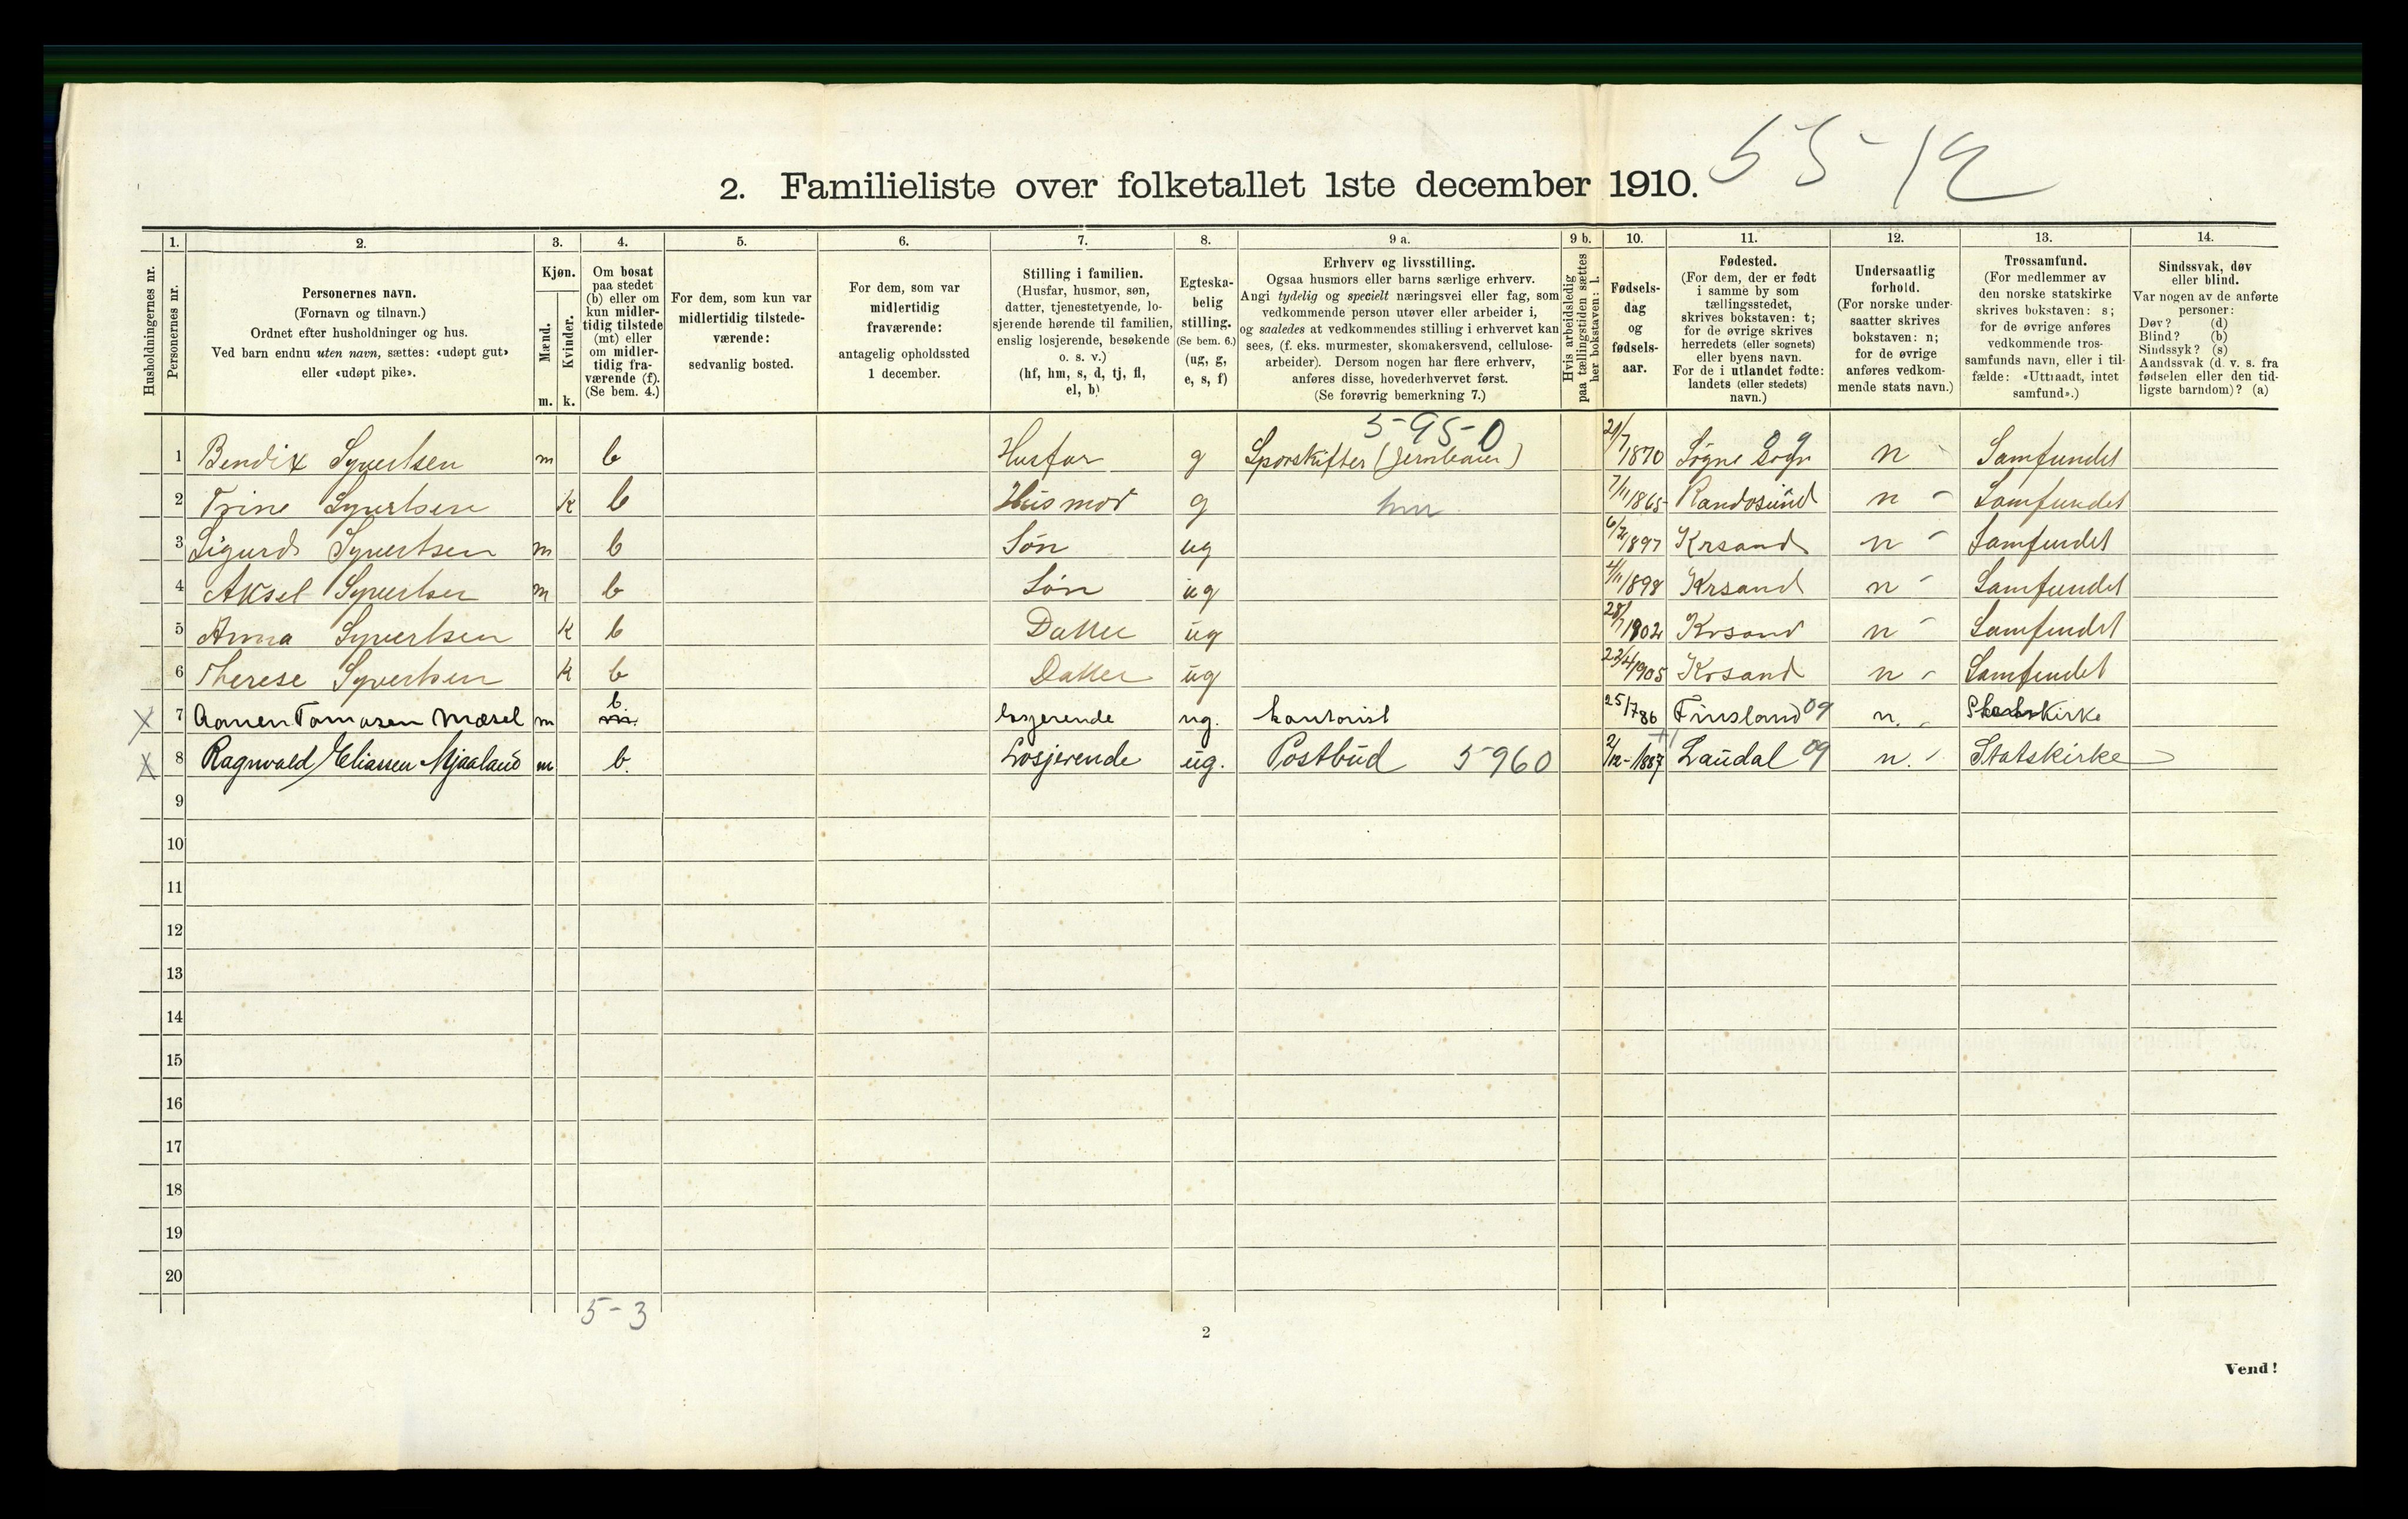 55-12
2. Familieliste over folketallet 1ste december 1910.
Husholdningernes nr.
1. Personernes nr.
2. Personernes navn. (Fornavn og tilnavn.) Ordnet efter husholdninger og hus. Ved barn endnu uten navn, sættes: «udøpt gut» eller «udøpt pike».
3. Kjøn. Mænd. m. Kvinder. k.
4. Om bosat paa stedet (b) eller om kun midlertidig tilstede (mt) eller om midlertidig fraværende (f). (Se bem. 4.)
5. For dem, som kun var midlertidig tilstedeværende: sedvanlig bosted.
6. For dem, som var midlertidig fraværende: antagelig opholdssted 1 december.
7. Stilling i familien. (Husfar, husmor, søn, datter, tjenestetyende, losjerende hørende til familien, enslig losjerende, besøkende o. s. v.) (hf, hm, s, d, tj, fl, el, b)
8. Egteskabelig stilling. (Se bem. 6.) (ug, g, e, s, f)
9 a. Erhverv og livsstilling. Ogsaa husmors eller barns særlige erhverv. Angi tydelig og specielt næringsvei eller fag, som vedkommende person utøver eller arbeider i, og saaledes at vedkommendes stilling i erhvervet kan sees, (f. eks. murmester, skomakersvend, cellulosearbeider). Dersom nogen har flere erhverv, anføres disse, hovederhvervet først. (Se forøvrig bemerkning 7.)
9 b. Hvis arbeidsledig paa tællingstiden sættes her bokstaven: l.
10. Fødselsdag og fødselsaar.
11. Fødested. (For dem, der er født i samme by som tællingsstedet, skrives bokstaven: t; for de øvrige skrives herredets (eller sognets) eller byens navn. For de i utlandet fødte: landets (eller stedets) navn.)
12. Undersaatlig forhold. (For norske undersaatter skrives bokstaven: n; for de øvrige anføres vedkommende stats navn.)
13. Trossamfund. (For medlemmer av den norske statskirke skrives bokstaven: s; for de øvrige anføres vedkommende trossamfunds navn, eller i tilfælde: «Uttraadt, intet samfund».)
14. Sindssvak, døv eller blind. Var nogen av de anførte personer: Døv? (d) Blind? (b) Sindssyk? (s) Aandssvak (d. v. s. fra fødselen eller den tidligste barndom)? (a)
5950
1 Bendix Syvertsen m b Husfar g Sporskifter (Jernbanen) 21/7 1870 Søgne Sogn 09 n Samfundet
2 Trine Syvertsen k b Husmor g hm 7/11 1865 Randosund n - Samfundet
3 Sigurd Syvertsen m b Søn ug 6/2 1897 Krsand n - Samfundet
4 Aksel Syvertsen m b Søn ug 4/11 1898 Krsand n - Samfundet
5 Anna Syvertsen k b Datter ug 28/7 1902 Krsand n - Samfundet
6 Therese Syvertsen k b Datter ug 23/4 1905 Krsand n - Samfundet
X 7 Aanen Tomasen Mæsel m b m. losjerende ug. kontorist 25/7 86 Finsland 09 n. - Statskirke
X 8 Ragnvald Eliassen Mjaaland m b. Losjerende ug. Postbud 5960 2/12-1887 Laudal 09 n. - Statskirke
9
10
11
12
13
14
15
16
17
18
19
20
5-3
2
Vend!